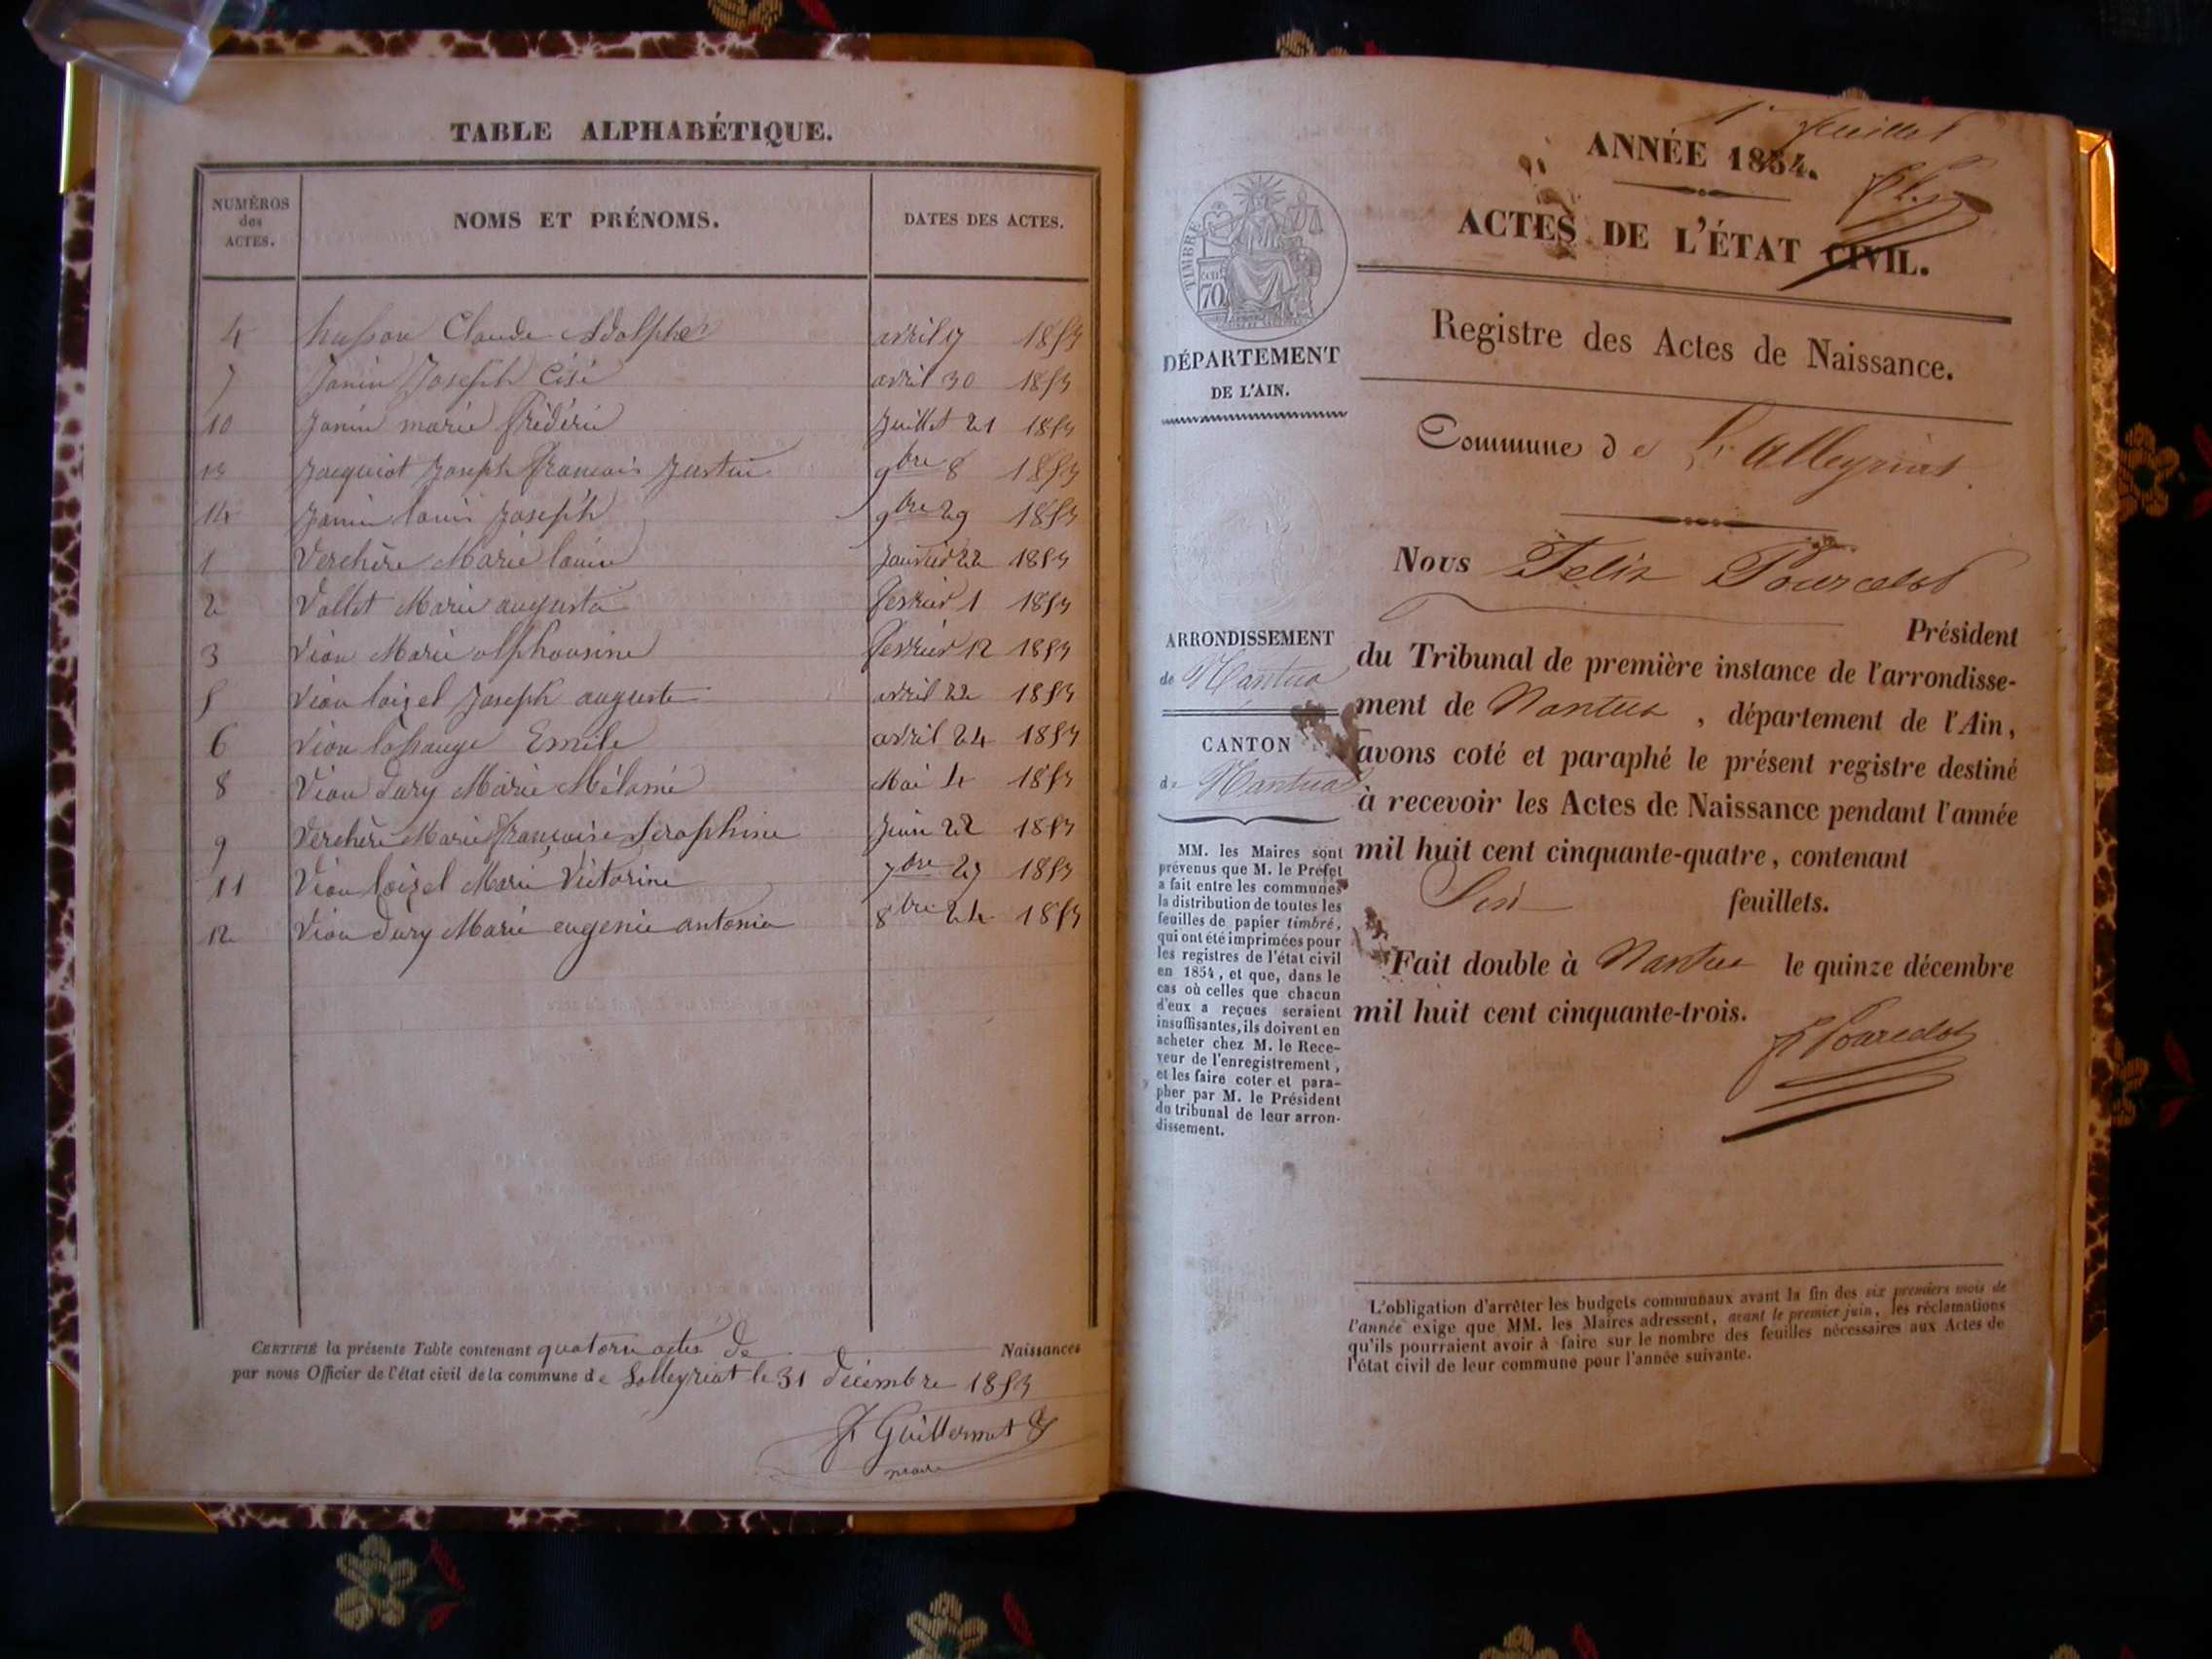 TABLE ALPHABÉTIQUE.
NUMÉROS des ACTES.
NOMS ET PRÉNOMS.
DATES DES ACTES.
4 husson Claude Adolphe avril 9 1853
7 Janin Joseph avril 30 1853
10 Janin marie frédéric Juillet 21 1853
13 Jacquiot Joseph françois Justin 9bre 8 1853
14 Janin louis Joseph 9bre 29 1853
1 Verchère Marie louise Janvier 22 1853
2 Vallet Marie augusta fevrier 1 1853
3 Vion Marie alphonsine fevrier 12 1853
5 Vion loizel Joseph auguste avril 22 1853
6 Vion Emile avril 24 1853
8 Vion dury Marie Mélanie Mai 4 1853
9 Verchère Marie françoise Séraphine Juin 22 1853
11 Vion loizel Marie Victorine 7bre 27 1853
12 Vion dury Marie eugenie antonia 8bre 24 1853
CERTIFIÉ la présente Table contenant quatorze actes de Naissances
par nous Officier de l'état civil de la commune de Lalleyriat le 31 décembre 1853
Guillermet
maire
1er feuillet
ANNÉE 1854.
ACTES DE L'ÉTAT CIVIL.
Registre des Actes de Naissance.
TIMBRE
70
DÉPARTEMENT
DE L'AIN.
Commune de Lalleyriat
Nous Felix Pourcelot
Président
du Tribunal de première instance de l'arrondisse-
ment de Nantua, département de l'Ain,
avons coté et paraphé le présent registre destiné
à recevoir les Actes de Naissance pendant l'année
mil huit cent cinquante-quatre, contenant
Six feuillets.
Fait double à Nantua le quinze décembre
mil huit cent cinquante-trois.
F Pourcelot
ARRONDISSEMENT
de Nantua
CANTON
de Nantua
MM. les Maires sont
prévenus que M. le Préfet
a fait entre les communes
la distribution de toutes les
feuilles de papier timbré,
qui ont été imprimées pour
les registres de l'état civil
en 1854, et que, dans le
cas où celles que chacun
d'eux a reçues seraient
insuffisantes, ils doivent en
acheter chez M. le Rece-
veur de l'enregistrement,
et les faire coter et para-
pher par M. le Président
du tribunal de leur arron-
dissement.
L'obligation d'arrêter les budgets communaux avant la fin des six premiers mois de
l'année exige que MM. les Maires adressent, avant le premier juin, les réclamations
qu'ils pourraient avoir à faire sur le nombre des feuilles nécessaires aux Actes de
l'état civil de leur commune pour l'année suivante.